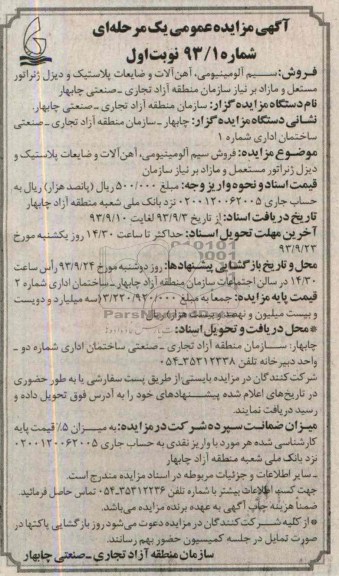 آگهی مزایده عمومی یک مرحله‌ای
شماره ۹۳/۱ نوبت اول
فروش: سیم آلومینیومی، آهن‌آلات و ضایعات پلاستیک و دیزل ژنراتور
مستعل و مازاد بر نیاز سازمان منطقه آزاد تجاری ـ صنعتی چابهار
نام دستگاه مزایده گزار: سازمان منطقه آزاد تجاری ـ صنعتی چابهار.
نشانی دستگاه مزایده گزار: چابهار ـ سازمان منطقه آزاد تجاری ـ صنعتی
ساختمان اداری شماره ۱
موضوع مزایده: فروش سیم آلومینیومی، آهن‌آلات و ضایعات پلاستیک و
دیزل ژنراتور مستعمل و مازاد بر نیاز سازمان
قیمت اسناد و نحوه واریز وجه: مبلغ ۵۰۰/۰۰۰ ریال (پانصد هزار) ریال به
حساب جاری ۰۲۰۰۱۲۰۰۶۲۰۰۵ نزد بانک ملی شعبه منطقه آزاد چابهار
تاریخ دریافت اسناد: از تاریخ ۹۳/۹/۳ لغایت ۹۳/۹/۱۰
آخرین مهلت تحویل اسناد: حداکثر تا ساعت ۱۴/۳۰ روز یکشنبه مورخ
۹۳/۹/۲۳
محل و تاریخ بازگشایی پیشنهادها: روز دوشنبه مورخ ۹۳/۹/۲۴ رأس ساعت
۱۴/۳۰ در سالن اجتماعات سازمان منطقه آزاد چابهار ـ ساختمان اداری شماره ۲
قیمت پایه مزایده: جمعاً به مبلغ ۳/۲۲۰/۹۲۰/۰۰۰ (سه میلیارد و دویست
و بیست میلیون و نهصد و بیست هزار) ریال
* محل دریافت و تحویل اسناد:
چابهار: سازمان منطقه آزاد تجاری ـ صنعتی ساختمان اداری شماره دو ـ
واحد دبیرخانه تلفن ۳۵۳۱۲۲۳۸-۰۵۴
شرکت کنندگان در مزایده بایستی از طریق پست سفارشی یا به طور حضوری
در تاریخ‌های اعلام شده پیشنهادهای خود را به آدرس فوق تحویل داده و
رسید دریافت نمایند.
میزان ضمانت سپرده شرکت در مزایده: به میزان ۵٪ قیمت پایه
کارشناسی شده هر مورد با واریز نقدی به حساب جاری ۰۲۰۰۱۲۰۰۶۲۰۰۵
نزد بانک ملی شعبه منطقه آزاد چابهار
ـ سایر اطلاعات و جزئیات مربوطه در اسناد مزایده مندرج است.
جهت کسب اطلاعات بیشتر با شماره تلفن ۳۵۳۱۲۲۳۶-۰۵۴ تماس حاصل فرمائید.
ضمناً هزینه چاپ آگهی به عهده برنده مزایده می‌باشد.
* از کلیه شرکت کنندگان در مزایده دعوت می‌شود روز بازگشایی پاکتها در
صورت تمایل در جلسه کمیسیون حضور بهم رسانند.
سازمان منطقه آزاد تجاری ـ صنعتی چابهار